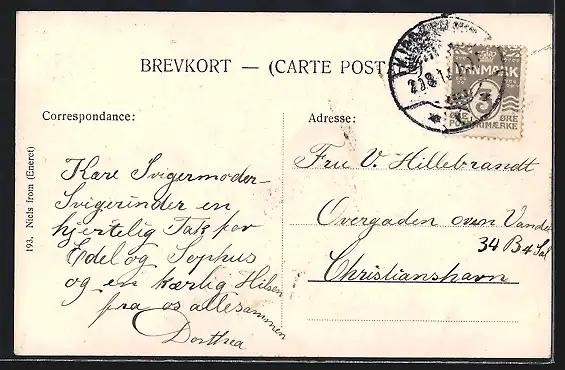 BREVKORT — (CARTE POST
DANMARK
3
ØRE ØRE
POSTFRIMÆRKE
Correspondance:
Adresse:
193. Niels From (Eneret)
Kære Svigermoder-
Svigerinder en
hjertelig Tak for
Edel og Sophus
og en kærlig Hilsen
fra os allesammen
Dorthea
Fru V. Hillebrandt
Overgaden oven Vandet
34 B 4 Sal
Christianshavn